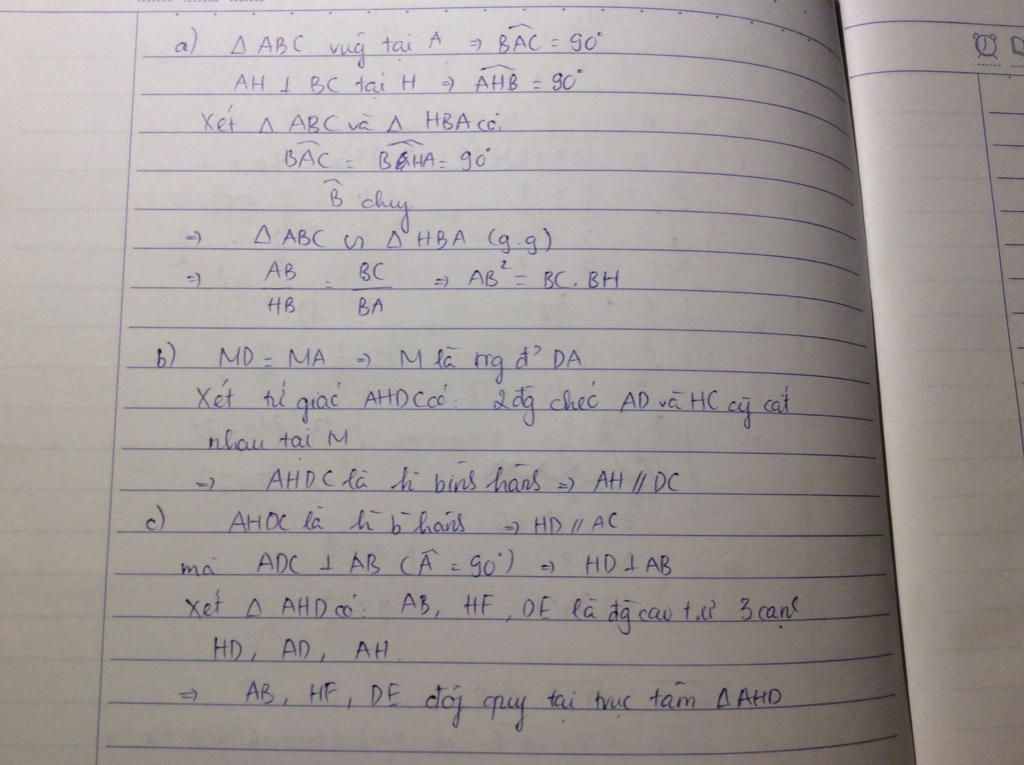 a) Δ ABC vug tại A ⇒ BÂC = 90°
AH ⊥ BC tại H ⇒ AĤB = 90°
Xét Δ ABC và Δ HBA có
BÂC = BĤA = 90°
B̂ chug
⇒ Δ ABC ∽ Δ HBA (g.g)
⇒ AB/HB = BC/BA ⇒ AB² = BC . BH
b) MD = MA ⇒ M là trg đ' DA
Xét tứ giác AHDC có: 2 đg chéo AD và HC cùg cắt
nhau tại M
⇒ AHDC là h bình hành ⇒ AH // DC
c) AHDC là h b hành ⇒ HD // AC
mà AC ⊥ AB (Â = 90°) ⇒ HD ⊥ AB
Xét Δ AHD có: AB, HF, DE là đg cao t.ư 3 cạnh
HD, AD, AH
⇒ AB, HF, DE đồg quy tại trực tâm Δ AHD